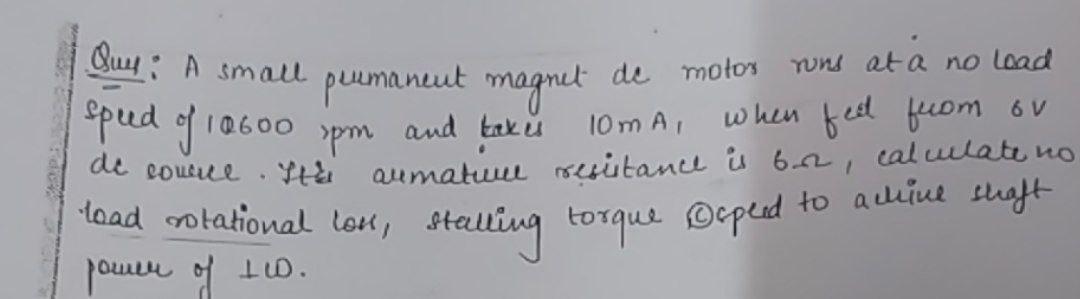 Ques: A small permanent magnet dc motor runs at a no load
speed of 10600 rpm and takes 10mA, when fed from 6V
dc source. Its armature resistance is 6Ω, calculate no
load rotational loss, stalling torque © speed to achive shaft
power of 1W.